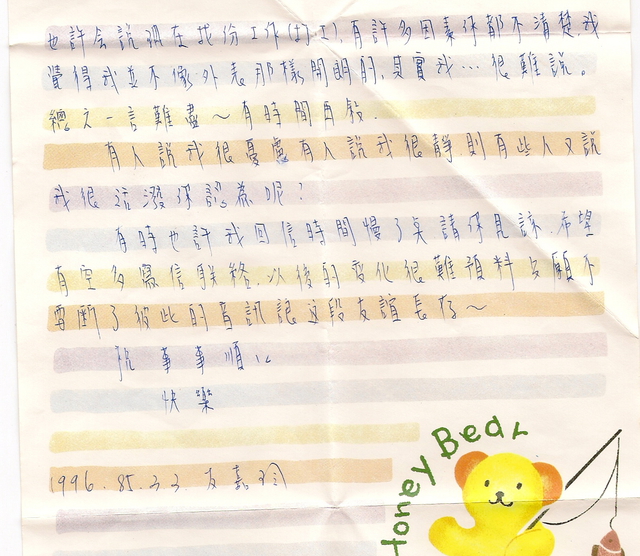 也許會說現在找份工作(打工).有許多因素你都不清楚.我
覺得我並不像外表那樣開朗的,其實我…很難說。
總之一言難盡～有時間再敘.
有人說我很憂慮有人說我很靜則有些人又說
我很活潑你認為呢?
有時也許我回信時間慢了點請你見諒.希望
有空多寫信聯絡.以後的變化很難預料只願不
要斷了彼此的音訊讓這段友誼長存～
祝 事事順心
快樂
1996.85.3.3. 友嘉玲
Honey Bear